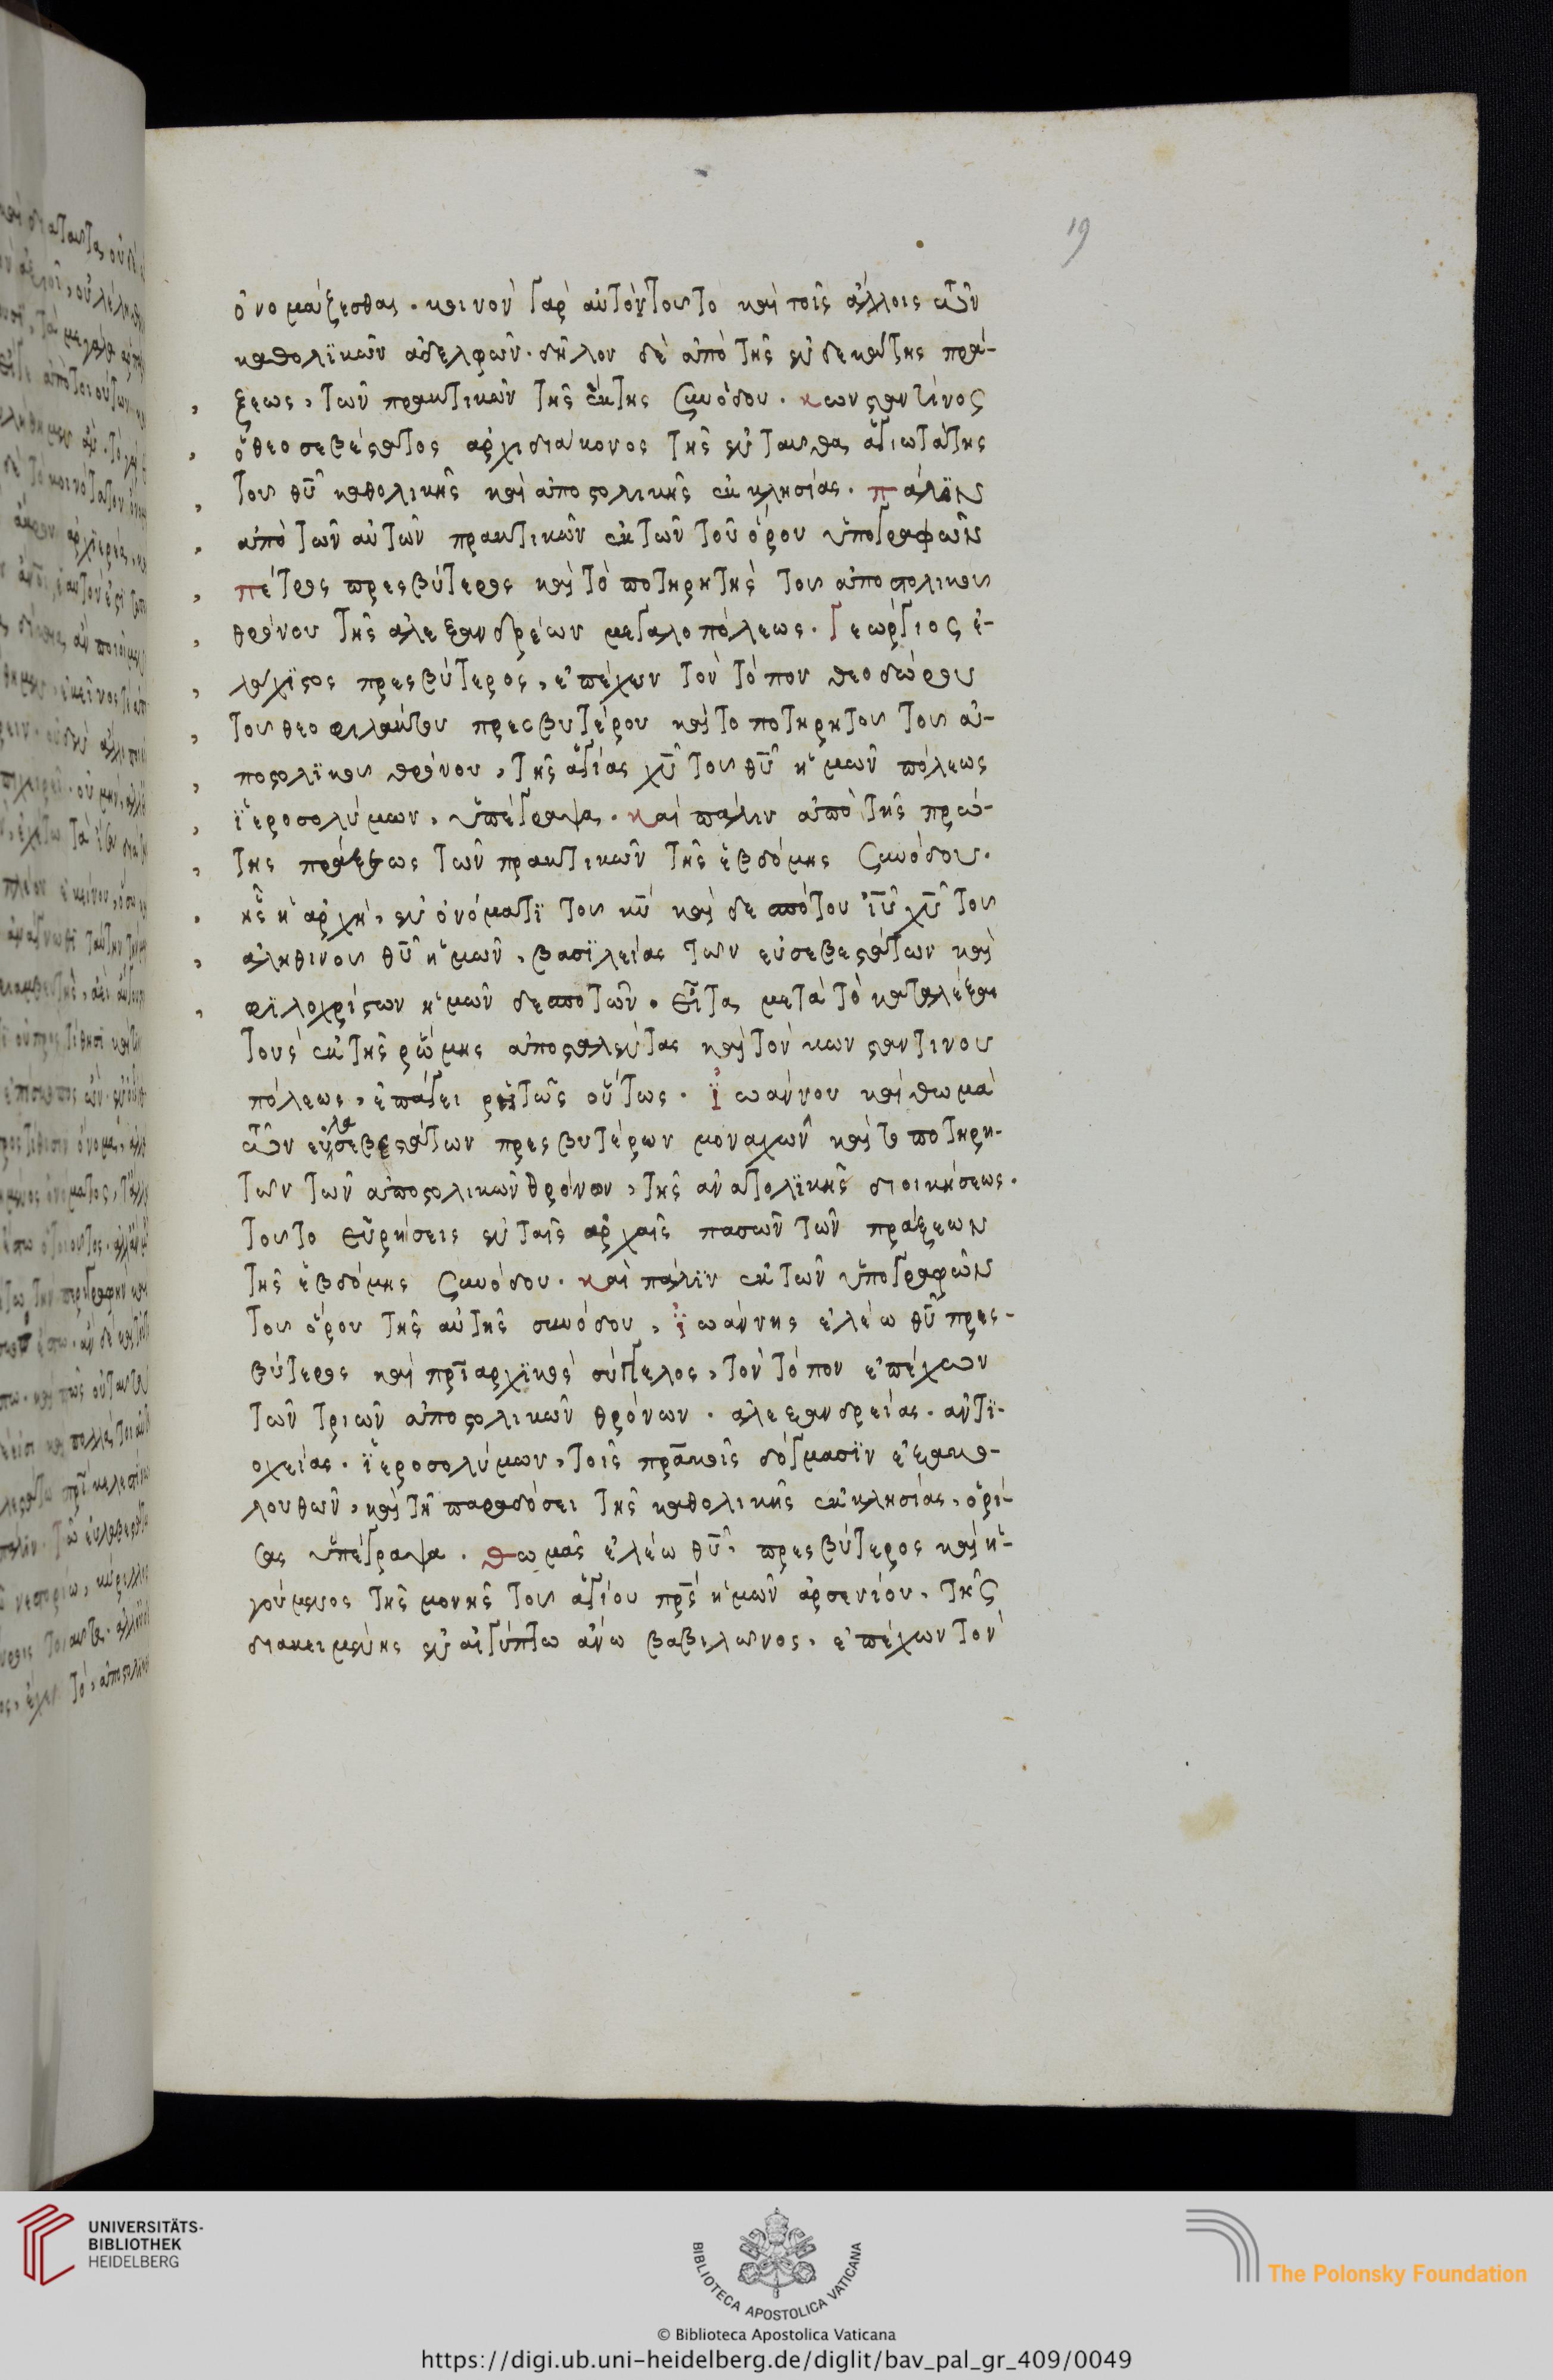 19
ὀνομάζεσθαι. κοινὸν γὰρ αὐτὸν τουτο καὶ τοῖς ἄλλοις τῶν
καθολϊκῶν ἀδελφῶν. δῆλον δὲ ἀπὸ τῆς ἑνδεκάτης πρά-
ξεως, τῶν πρακτικῶν τῆς ἕκτης ςυνόδου. κωνσταντίνος
ὁ θεοσεβέστατος ἀρχιδιάκονος τῆς ἐνταυθα ἁγιωτάτης
του θυ καθολικῆς καὶ ἀποστολικῆς ἐκκλησίας. πάλϊν
ἀπὸ τῶν αὐτῶν πρακτικῶν ἐκ τῶν τοῦ ὅρου ὑπογραφῶν
πέτρος πρεσβύτερος καὶ τοποτηρητὴς του ἀποστολικου
θρόνου τῆς ἀλεξανδρέων μεγαλοπόλεως. γεώργιος ἐ-
λάχϊστος πρεσβύτερος, ἐπέχων τὸν τόπον θεοδώρου
του θεοφιλάκτου πρεσβυτέρου καὶ τοποτηρητου του ἀ-
ποστολϊκου θρόνου, τῆς ἁγίας χυ του θυ ἡμῶν πόλεως
ϊεροσολύμων, ὑπέγραψα. καὶ πάλιν ἀπὸ τῆς πρώ-
της πράξεως τῶν πρακτικῶν τῆς ἑβδόμης ςυνόδου.
ἧς ἡ ἀρχὴ, ἐν ὀνόματϊ του κυ καὶ δεσπότου ιυ χυ του
ἀληθινου θυ ἡμῶν, βασϊλείας των εὐσεβεστάτων καὶ
φϊλοχρίστων ἡμῶν δεσποτῶν. εἶτα μετὰ τὸ καταλέξαι
τοὺς ἐκ τῆς ῥώμης ἀποσταλέντας καὶ τὸν κωνσταντινου
πόλεως, ἐπάγει ῥητῶς οὕτως. ϊωάννου καὶ θωμὰ
τῶν εὐσεβεστάτων λα πρεσβυτέρων μοναχῶν καὶ τοποτηρη-
των τῶν ἀποστολικῶν θρόνων, τῆς ἀνατολϊκῆς διοικήσεως.
τουτο εὑρήσεις ἐν ταῖς ἀρχαῖς πασῶν τῶν πράξεων
τῆς ἑβδόμης ςυνόδου. καὶ πάλϊν ἐκ τῶν ὑπογραφῶν
του ὅρου τῆς αὐτῆς συνόδου, ϊωάννης ἐλέω θυ πρεσ-
βύτερος καὶ πριαρχϊκὸς σύγγελος, τὸν τόπον ἐπέχων
τῶν τριῶν ἀποστολικῶν θρόνων. ἀλεξανδρείας. ἀντϊ-
οχείας. ϊεροσολύμων, τοῖς πρικοῖς δόγμασϊν ἐξακο-
λουθῶν, καὶ τῇ παραδόσει τῆς καθολικῆς ἐκκλησίας, ὁρί-
σας ὑπέγραψα. θωμᾶς ἐλέω θυ, πρεσβύτερος καὶ ἡ-
γούμενος τῆς μονῆς του ἁγίου πρς ἡμῶν ἀρσενίου, τῆς
διακειμένης ἐν αἰγύπτω ἄνω βαβιλωνος, ἐπέχων τὸν
UNIVERSITÄTS-
BIBLIOTHEK
HEIDELBERG
BIBLIOTECA APOSTOLICA VATICANA
The Polonsky Foundation
© Biblioteca Apostolica Vaticana
https://digi.ub.uni-heidelberg.de/diglit/bav_pal_gr_409/0049